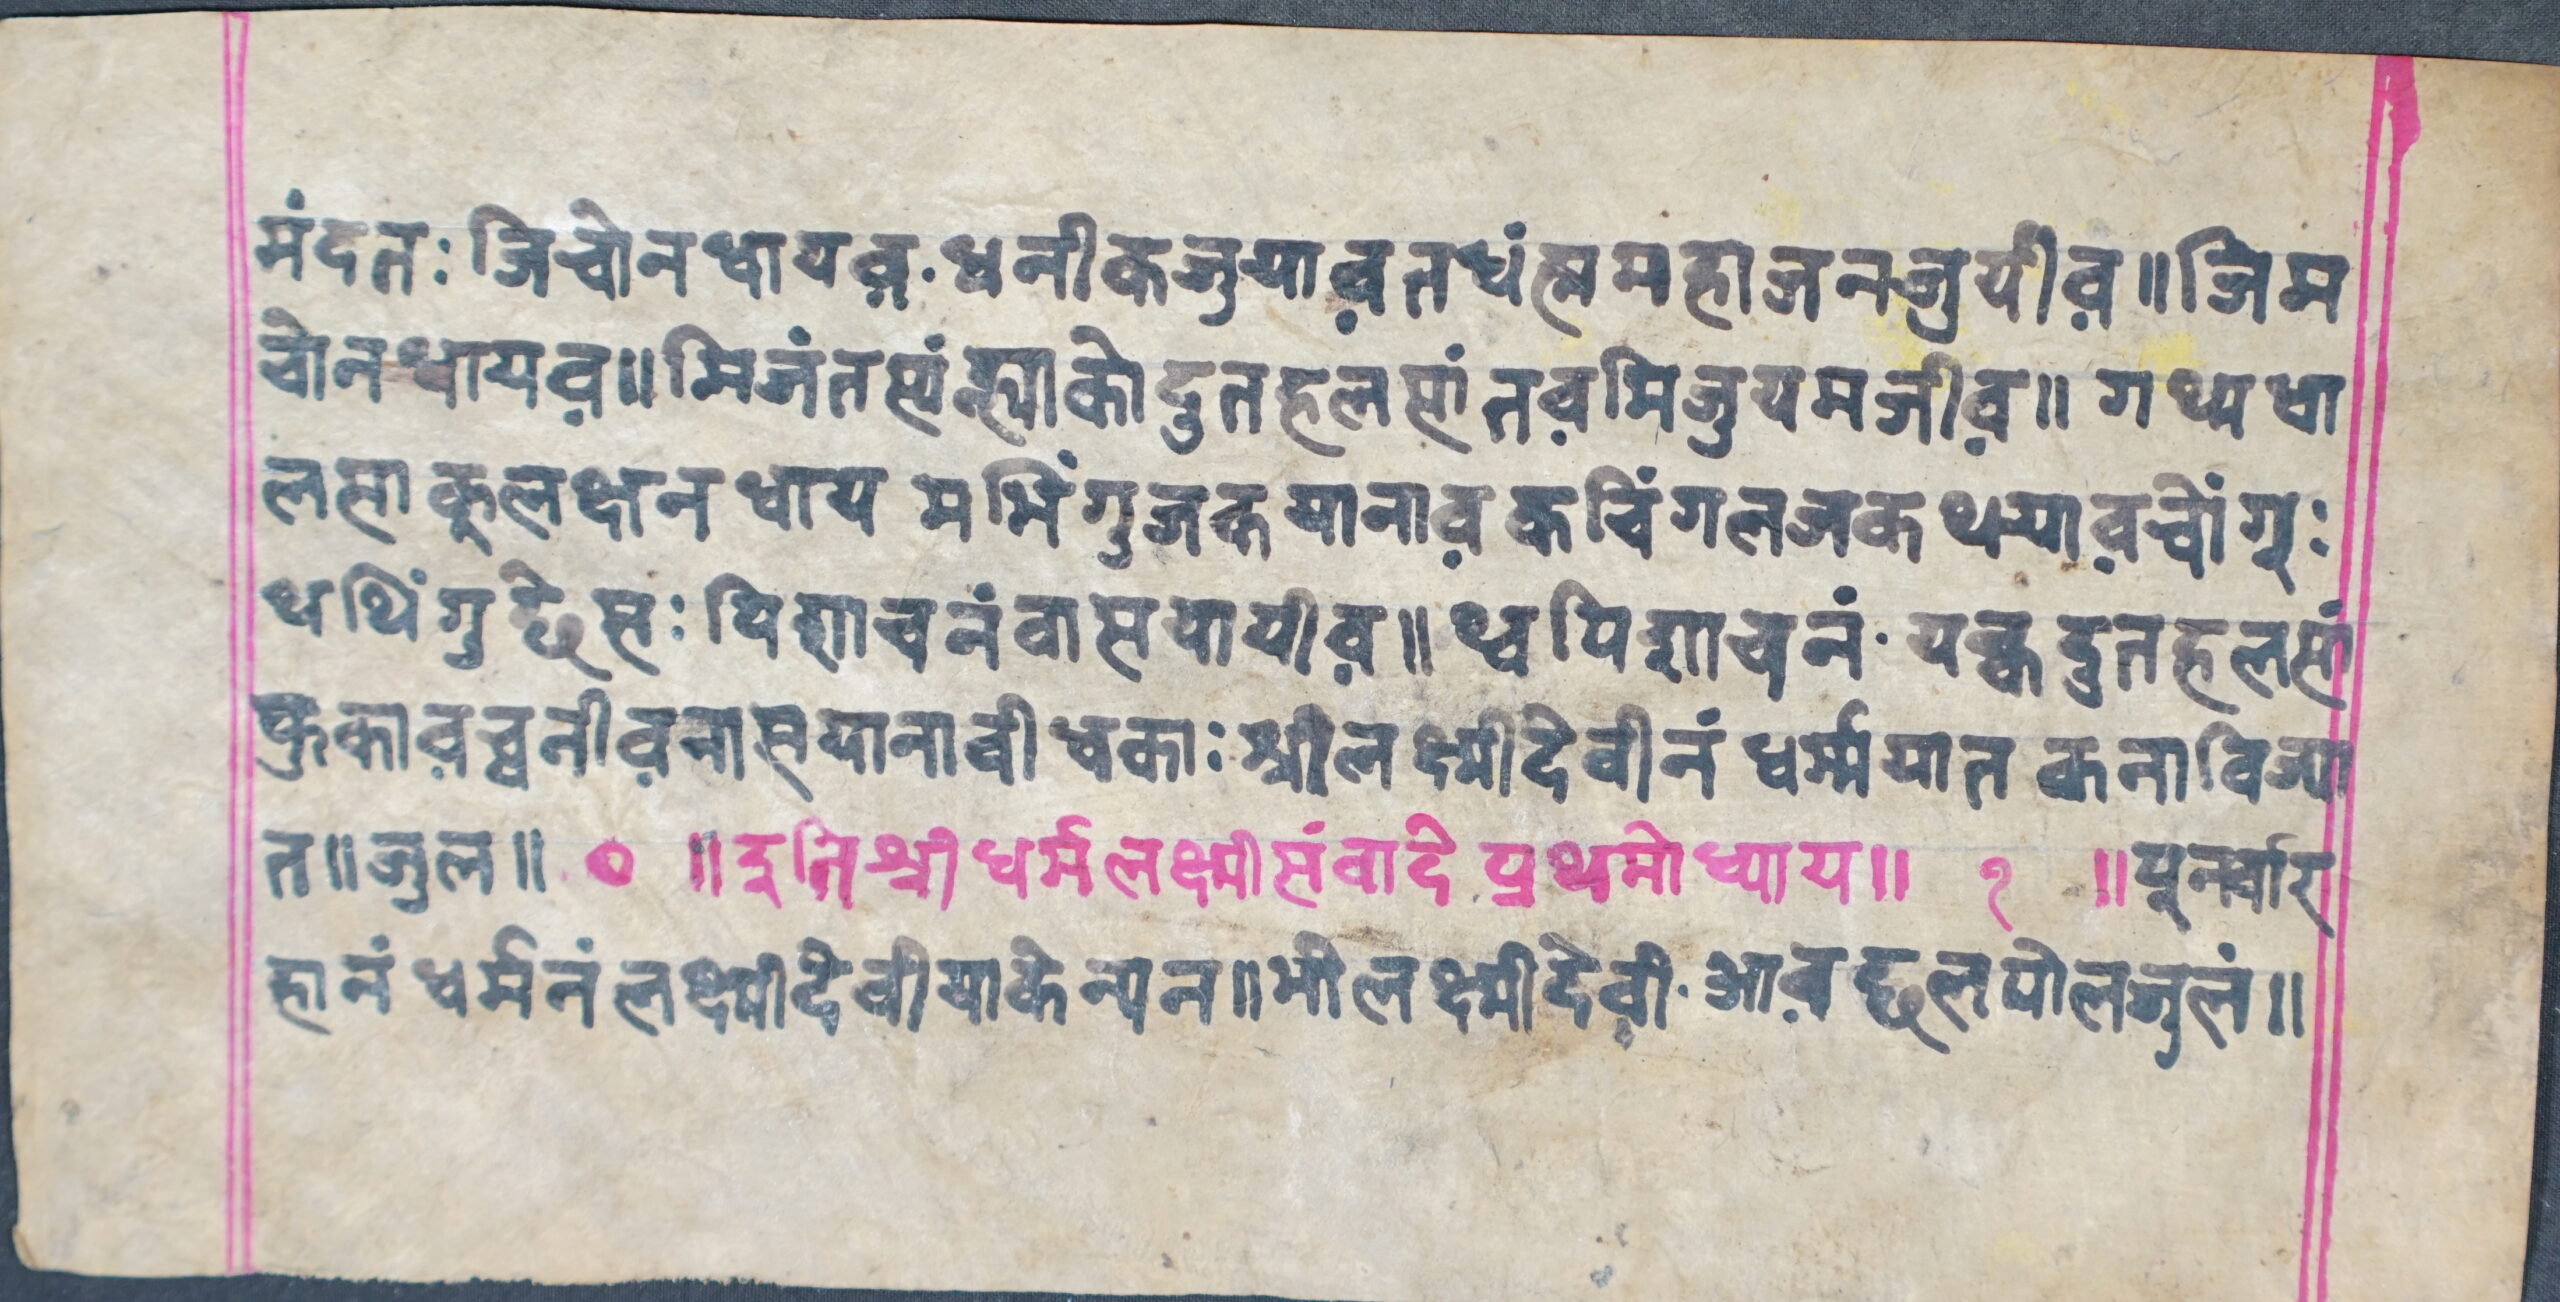 मंदतः जिचोनधायव़·धनीकजुयाव़तधंह्ममहाजनजुयीव़॥जिम
चोनधायव़॥मिजंतस्यंह्याकोदुतहलसांतव़मिजुयमजीव़॥ गथ्यधा
लसा कूलक्षनधाय मभिंगुजकयानाव़कचिंगलजकथयाव़चोंगूः
थथिंगुछेसः पिशाचनंवासयायीव़॥थ्वपिशाचनं·यक्वदुतहलसां
फुकाव़व्वनीव़नासयानावीधकाः श्रीलक्ष्मीदेवीनं धर्म्मयात कनाविज्या
त॥जुल॥ ० ॥इतिश्रीधर्मलक्ष्मीसंवादे प्रथमोध्याय॥ १ ॥पूनर्व्वार
हानं धर्मनं लक्ष्मीदेवीयाकेन्यन॥भोलक्ष्मीदेवी·आव़छलपोलजुलं॥